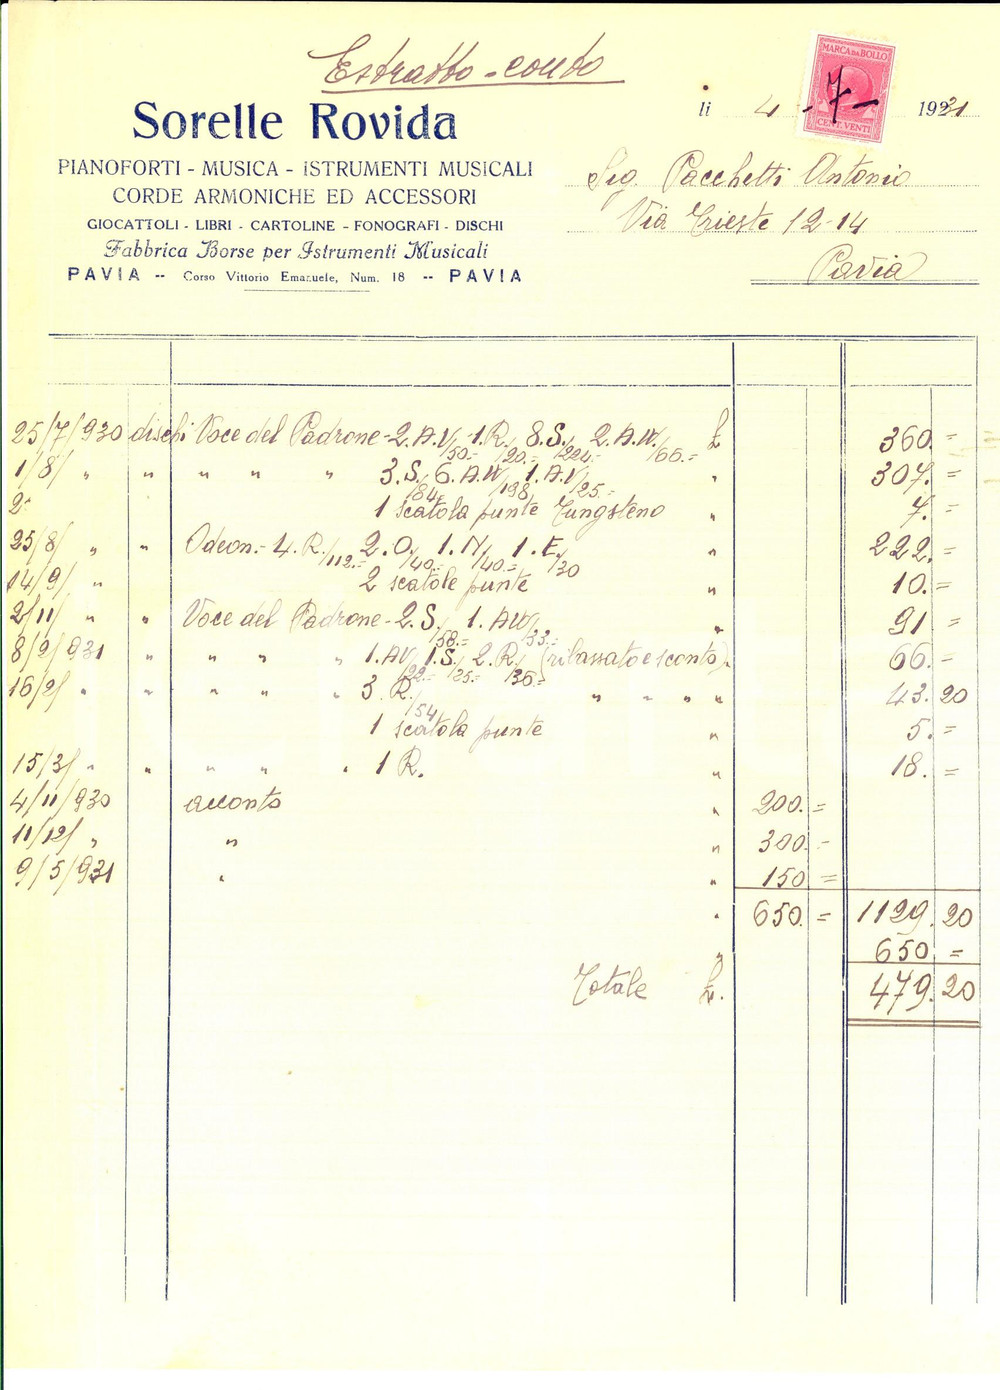 Estratto-conto
Sorelle Rovida
PIANOFORTI - MUSICA - ISTRUMENTI MUSICALI
CORDE ARMONICHE ED ACCESSORI
GIOCATTOLI - LIBRI - CARTOLINE - FONOGRAFI - DISCHI
Fabbrica Borse per Istrumenti Musicali
PAVIA -- Corso Vittorio Emanuele, Num. 18 -- PAVIA
li 4 - 7 - 1931
MARCA DA BOLLO
CENT. VENTI
Sig. Pacchetti Antonio
Via Trieste 12-14
Pavia
25/7/930 dischi Voce del Padrone - 2. A.V/50.- 1. R./20.- 8. S./224.- 2. A.W./66.= £ 360.=
1/8/ " " " " " 3. S./84= 6. A.W/198 1. A.V/25.= " 307.=
2= 1 scatola punte Tungsteno " 7.=
25/8/ " " Odeon.- 4. R./112.= 2. O./40.= 1. N/40.= 1. E./30 " 222.=
14/9/ " 2 scatole punte " 10.=
2/11/ " " Voce del Padrone - 2. S./58.= 1. A.W/33.= " 91 =
8/2/931 " " " " 1. AV/22.= 1. S./25.= 2. R./36.= (ribassato e sconto) " 66.=
16/2/ " " " " " 3. R./54 " " " " 43.20
1 scatola punte " 5.=
15/3/ " " " " " 1 R. " 18.=
4/11/930 acconto " 200.=
11/12/ " " " 300.=
9/5/931 " " 150 =
" 650.= 1129.20
" 650 =
Totale £. 479.20